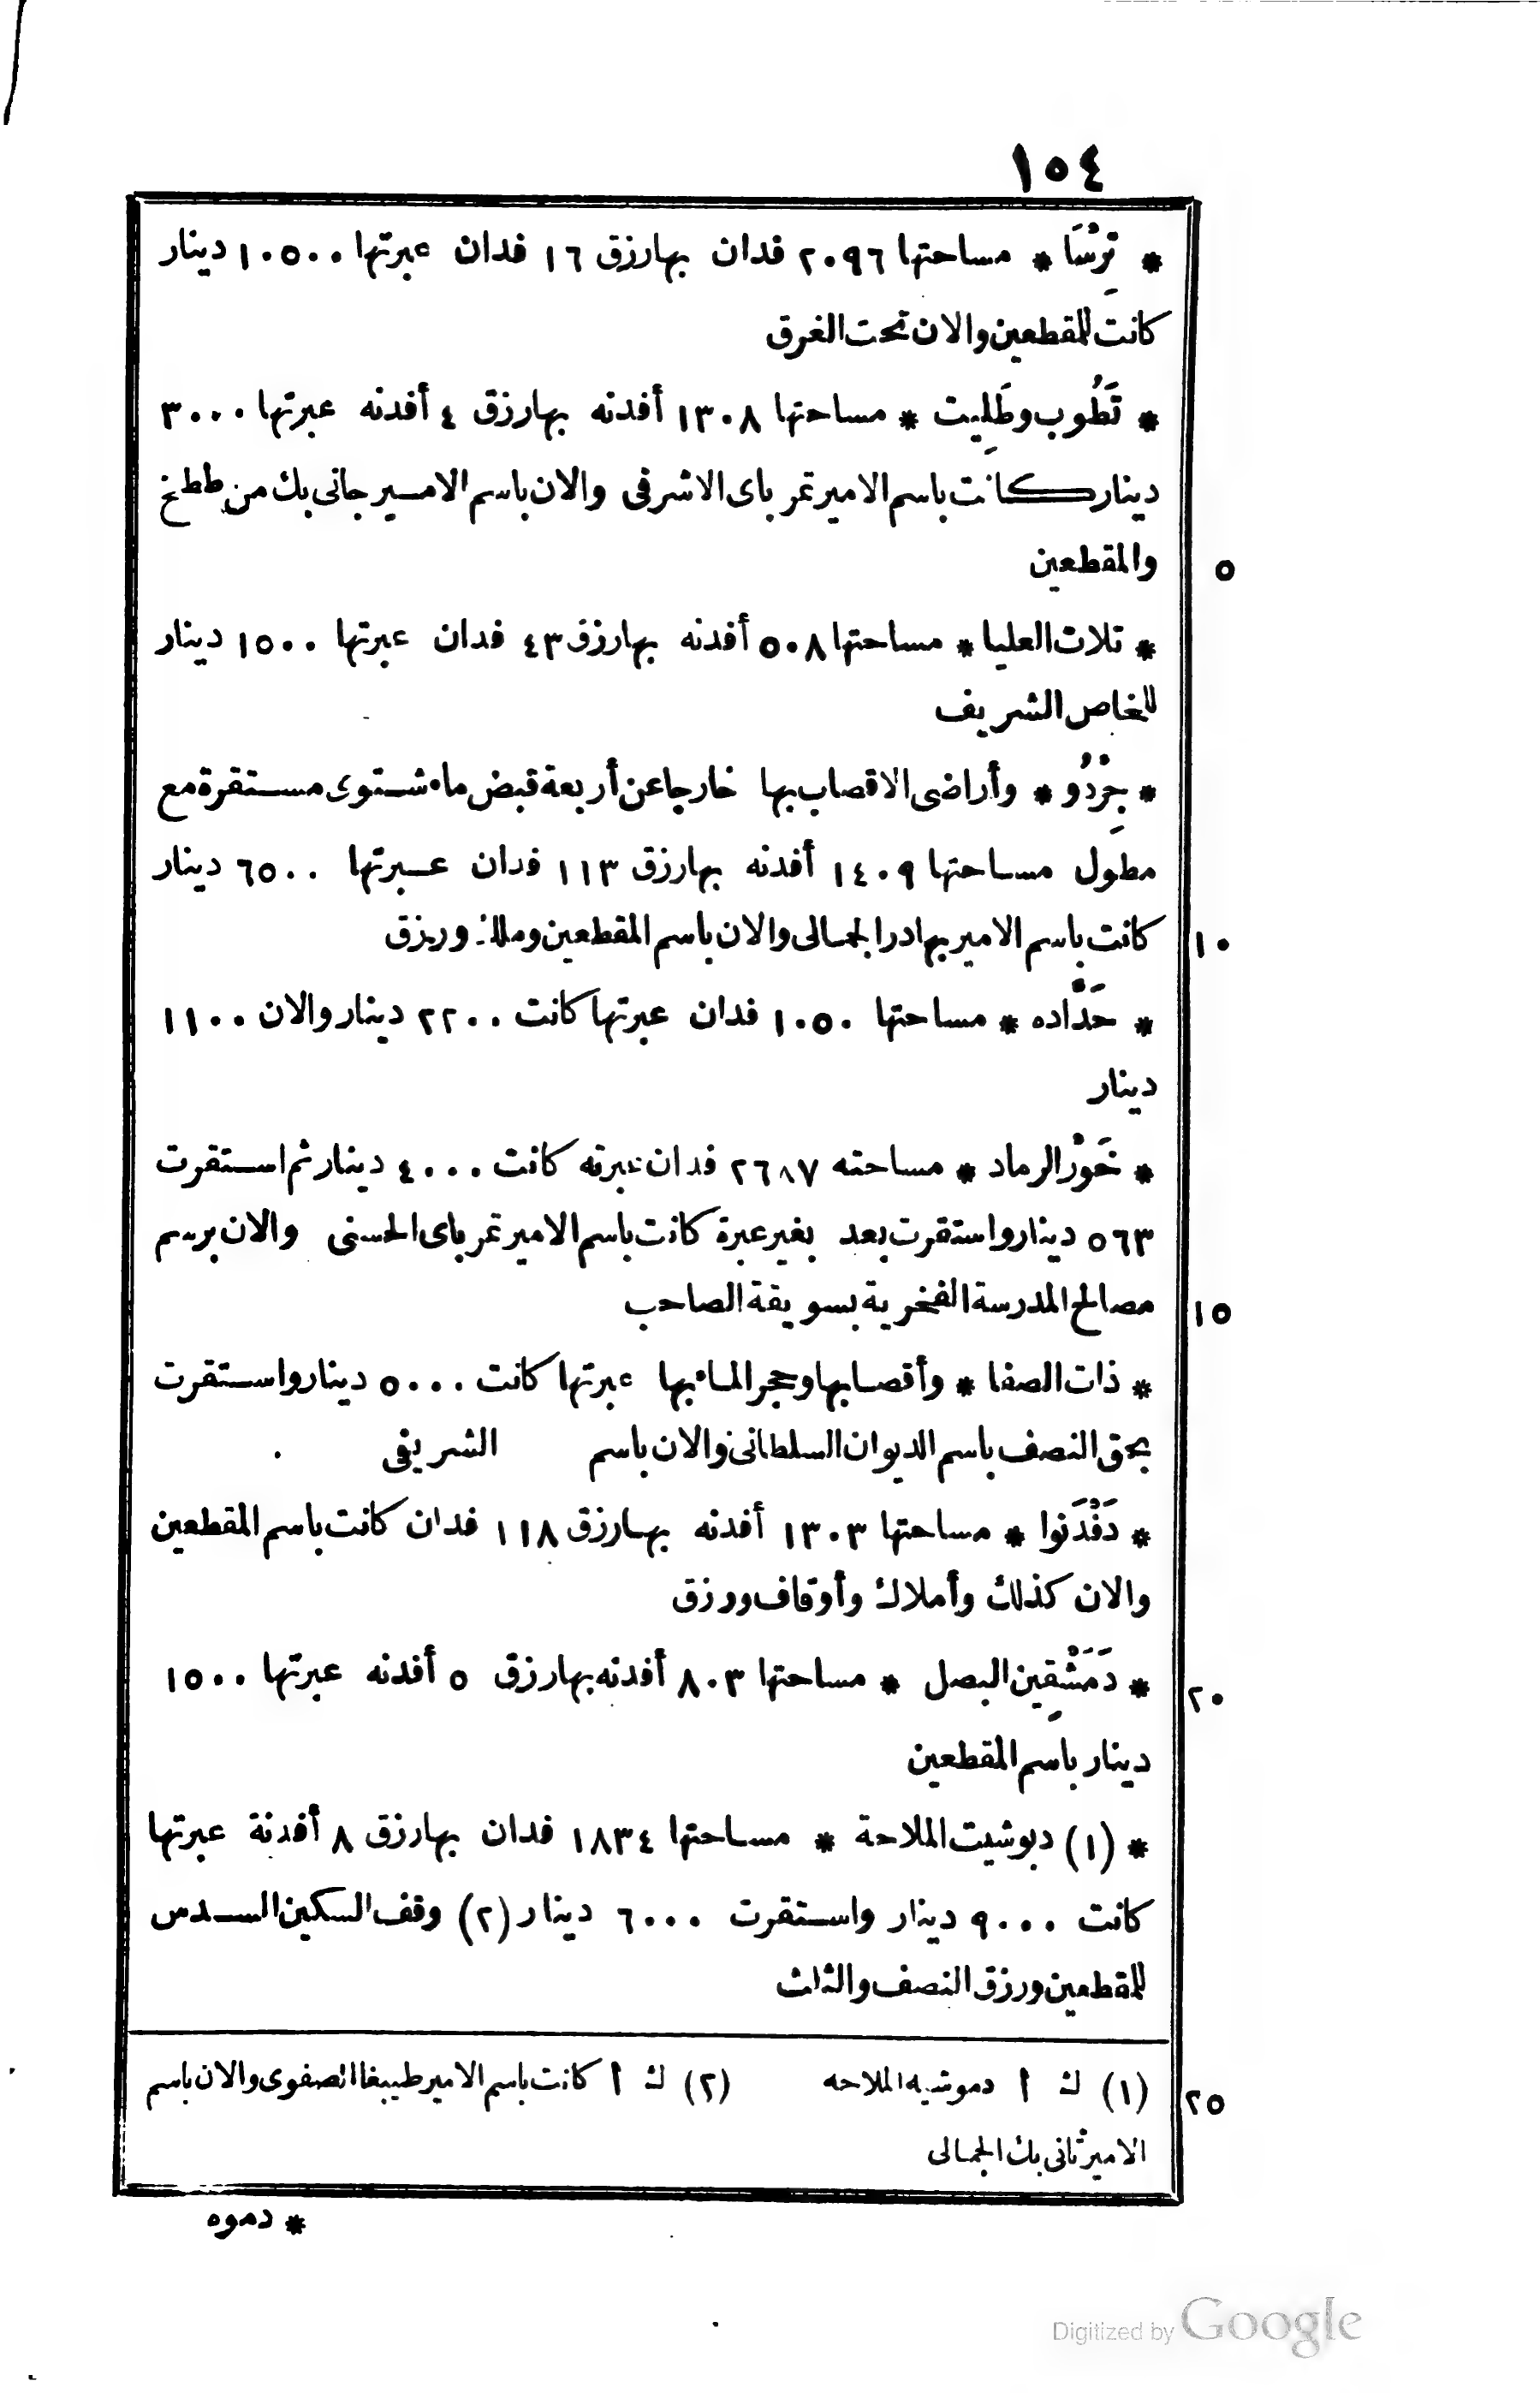 ١٥٤
* تِرْسَا * مساحتها ٢٠٩٦ فدان بها رزق ١٦ فدان عبرتها ١٠٥٠٠ دينار
كانت للمقطعين والان تحت الغرق
* تَطُوب وطَلِيت * مساحتها ١٣٠٨ أفدنه بها رزق ٤ أفدنه عبرتها ٣٠٠٠
دينار كانت باسم الامير تمر باى الاشرفى والان باسم الامير جانى بك من ططخ
والمقطعين
٥
* تلات العليا * مساحتها ٥٠٨ أفدنه بها رزق ٤٣ فدان عبرتها ١٥٠٠ دينار
للخاص الشريف
* جِرْدُو * وأراضى الاقصاب بها خارجا عن أربعة قبض ماء شتوى مستقرة مع
مطول مساحتها ١٤٠٩ أفدنه بها رزق ١١٣ فدان عبرتها ٦٥٠٠ دينار
كانت باسم الامير بهادر الجمالى والان باسم المقطعين وملك ورزق
١٠
* حَدَّاده * مساحتها ١٠٥٠ فدان عبرتها كانت ٢٢٠٠ دينار والان ١١٠٠
دينار
* خَوْر الرماد * مساحته ٢٦٨٧ فدان عبرته كانت ٤٠٠٠ دينار ثم استقرت
٥٦٣ دينار واستقرت بعد بغير عبرة كانت باسم الامير تمر باى الحسنى والان برسم
مصالح المدرسة الفخرية بسويقة الصاحب
١٥
* ذات الصفا * وأقصابها وحجر الماء بها عبرتها كانت ٥٠٠٠ دينار واستقرت
بحق النصف باسم الديوان السلطانى والان باسم الشريفى
* دَفْدَنوا * مساحتها ١٣٠٣ أفدنه بها رزق ١١٨ فدان كانت باسم المقطعين
والان كذلك وأملاك وأوقاف ورزق
* دَمَشْقِين البصل * مساحتها ٨٠٣ أفدنه بها رزق ٥ أفدنه عبرتها ١٥٠٠
٢٠
دينار باسم المقطعين
* (١) دبوشيت الملاحة * مساحتها ١٨٣٤ فدان بها رزق ٨ أفدنة عبرتها
كانت ٩٠٠٠ دينار واستقرت ٦٠٠٠ دينار (٢) وقف السكين السدس
للمقطعين ورزق النصف والثلث
(١) ك أ دموشيه الملاحه (٢) ك أ كانت باسم الامير طيبغا الصفوى والان باسم
٢٥
الامير ثانى بك الجمالى
* دموه
Digitized by Google